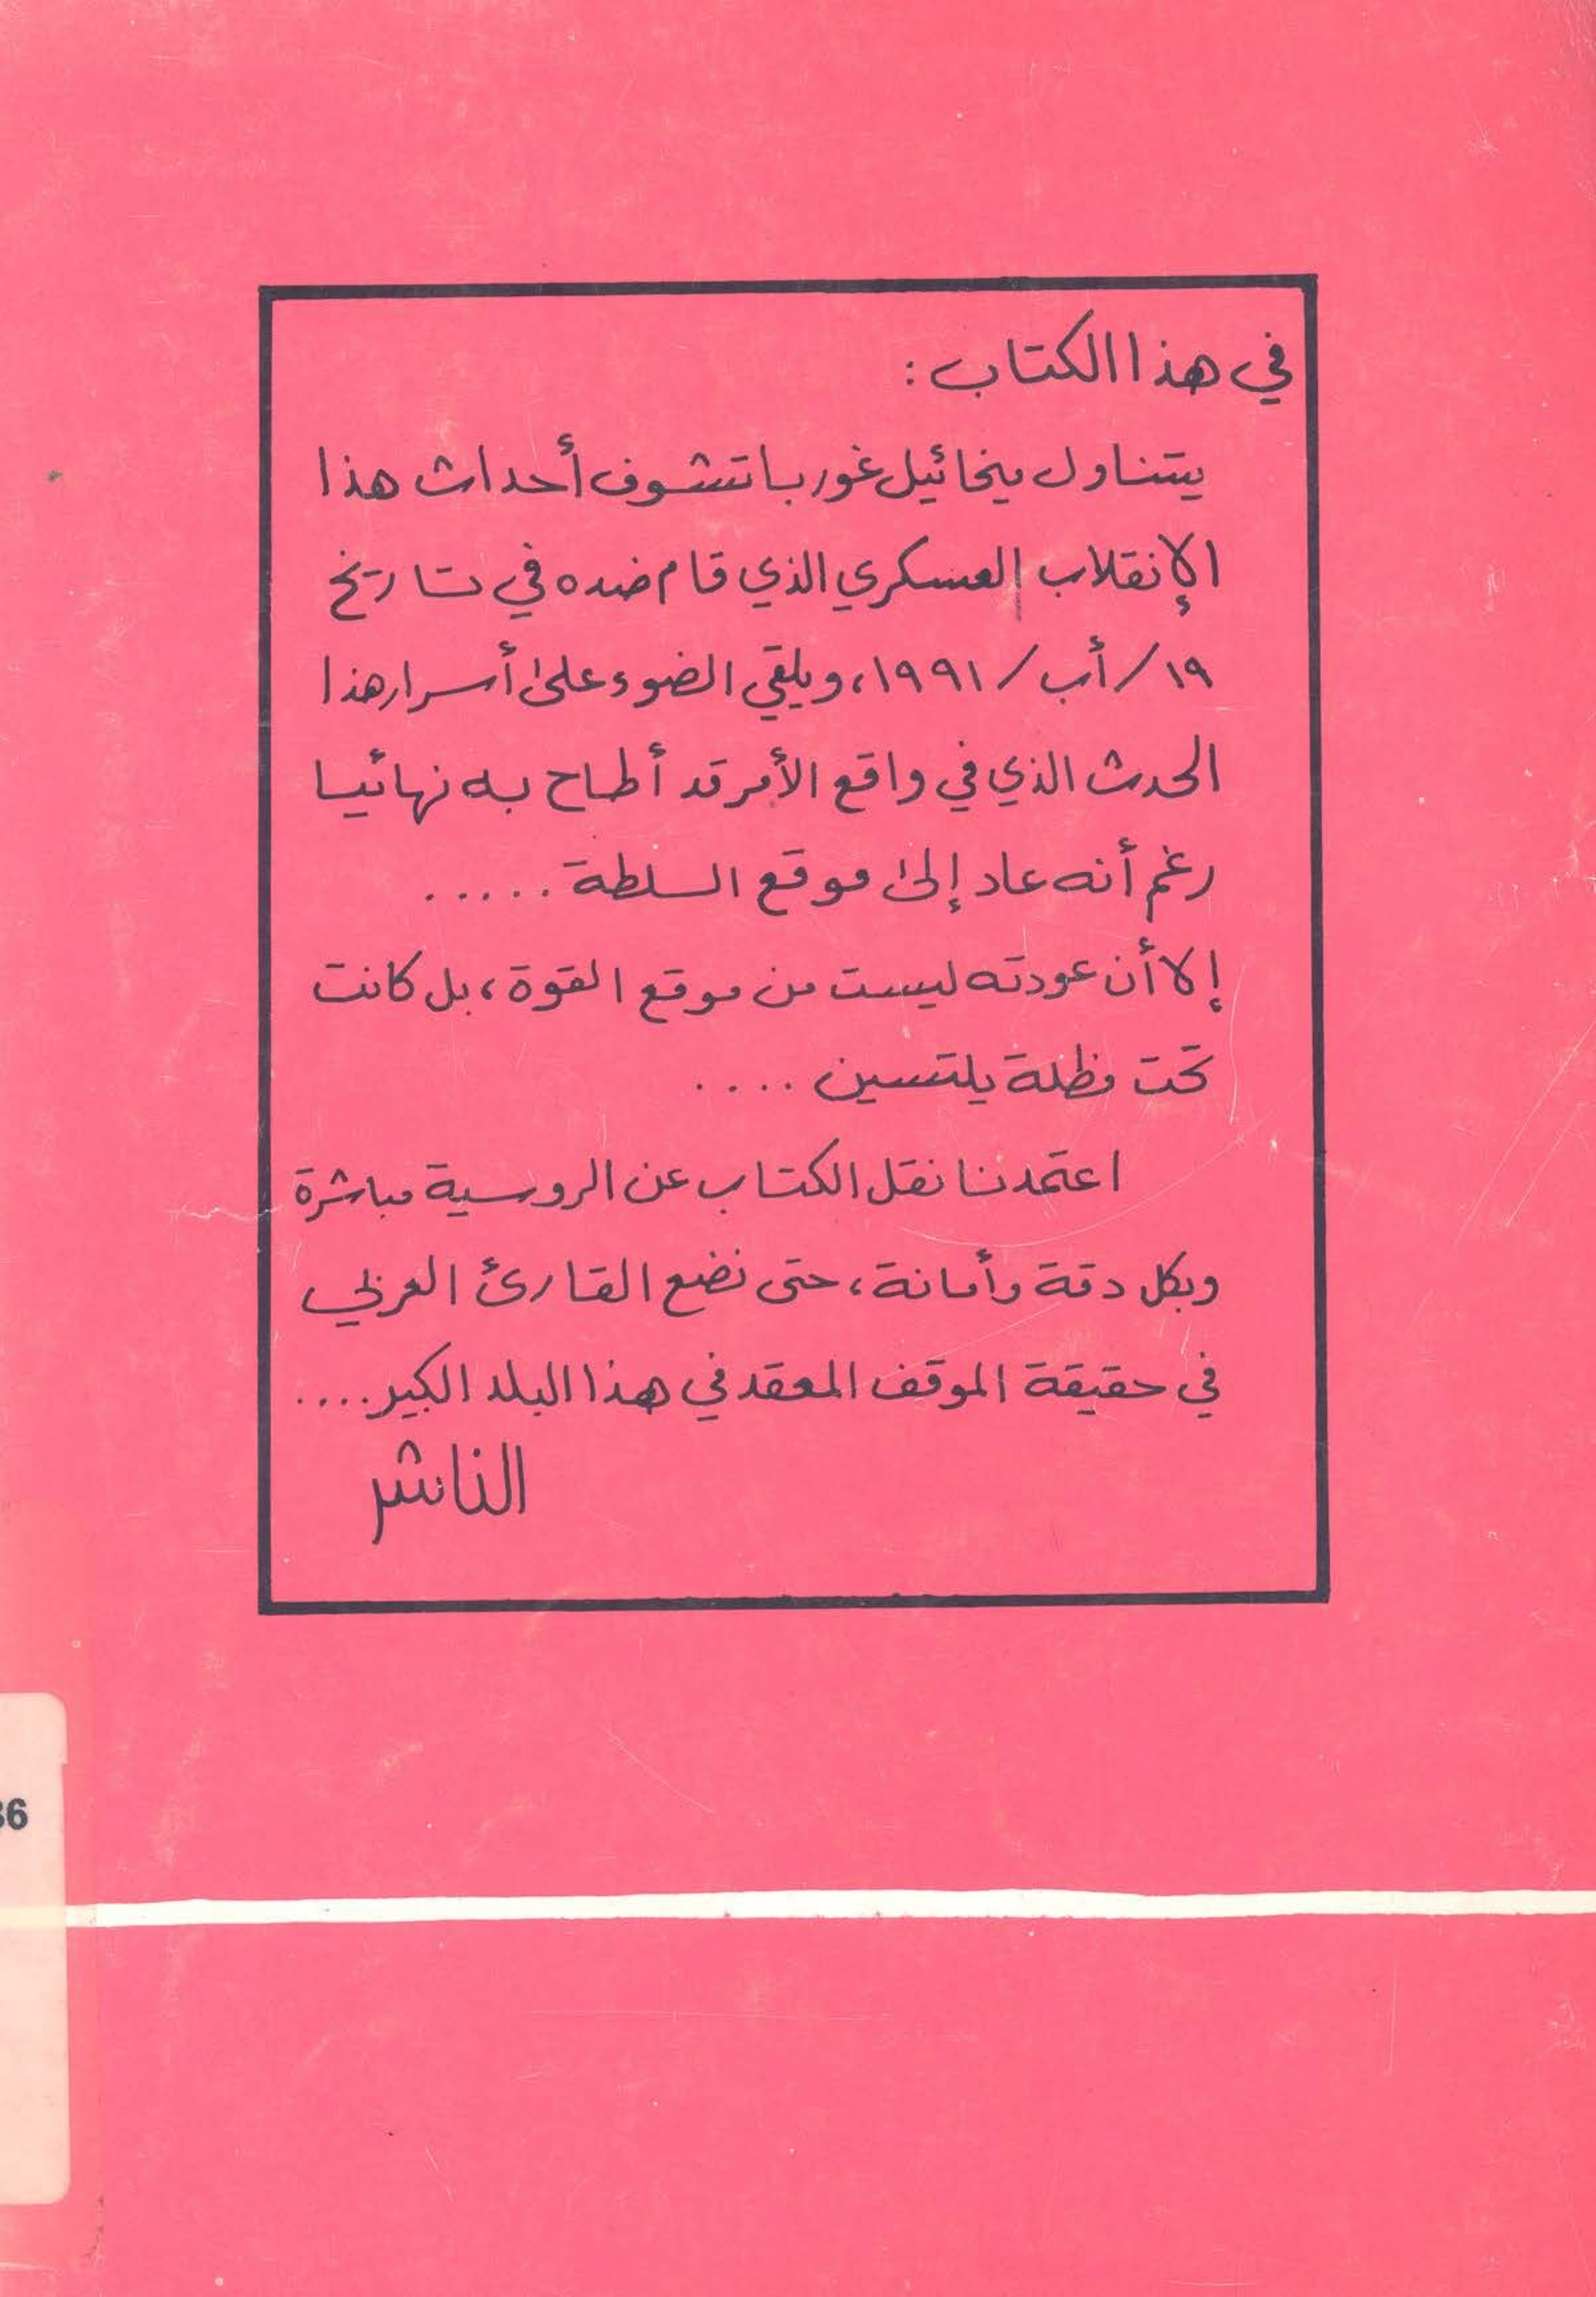 في هذا الكتاب :
يتناول ميخائيل غورباتشوف أحداث هذا
الإنقلاب العسكري الذي قام ضده في تاريخ
١٩/أب/١٩٩١، ويلقي الضوء على أسرار هذا
الحدث الذي في واقع الأمر قد أطاح به نهائيا
رغم أنه عاد إلى موقع السلطة .....
إلا أن عودته ليست من موقع القوة، بل كانت
تحت مظلة يلتسين ....
اعتمدنا نقل الكتاب عن الروسية مباشرة
وبكل دقة وأمانة، حتى نضع القارئ العربي
في حقيقة الموقف المعقد في هذا البلد الكبير....
الناشر